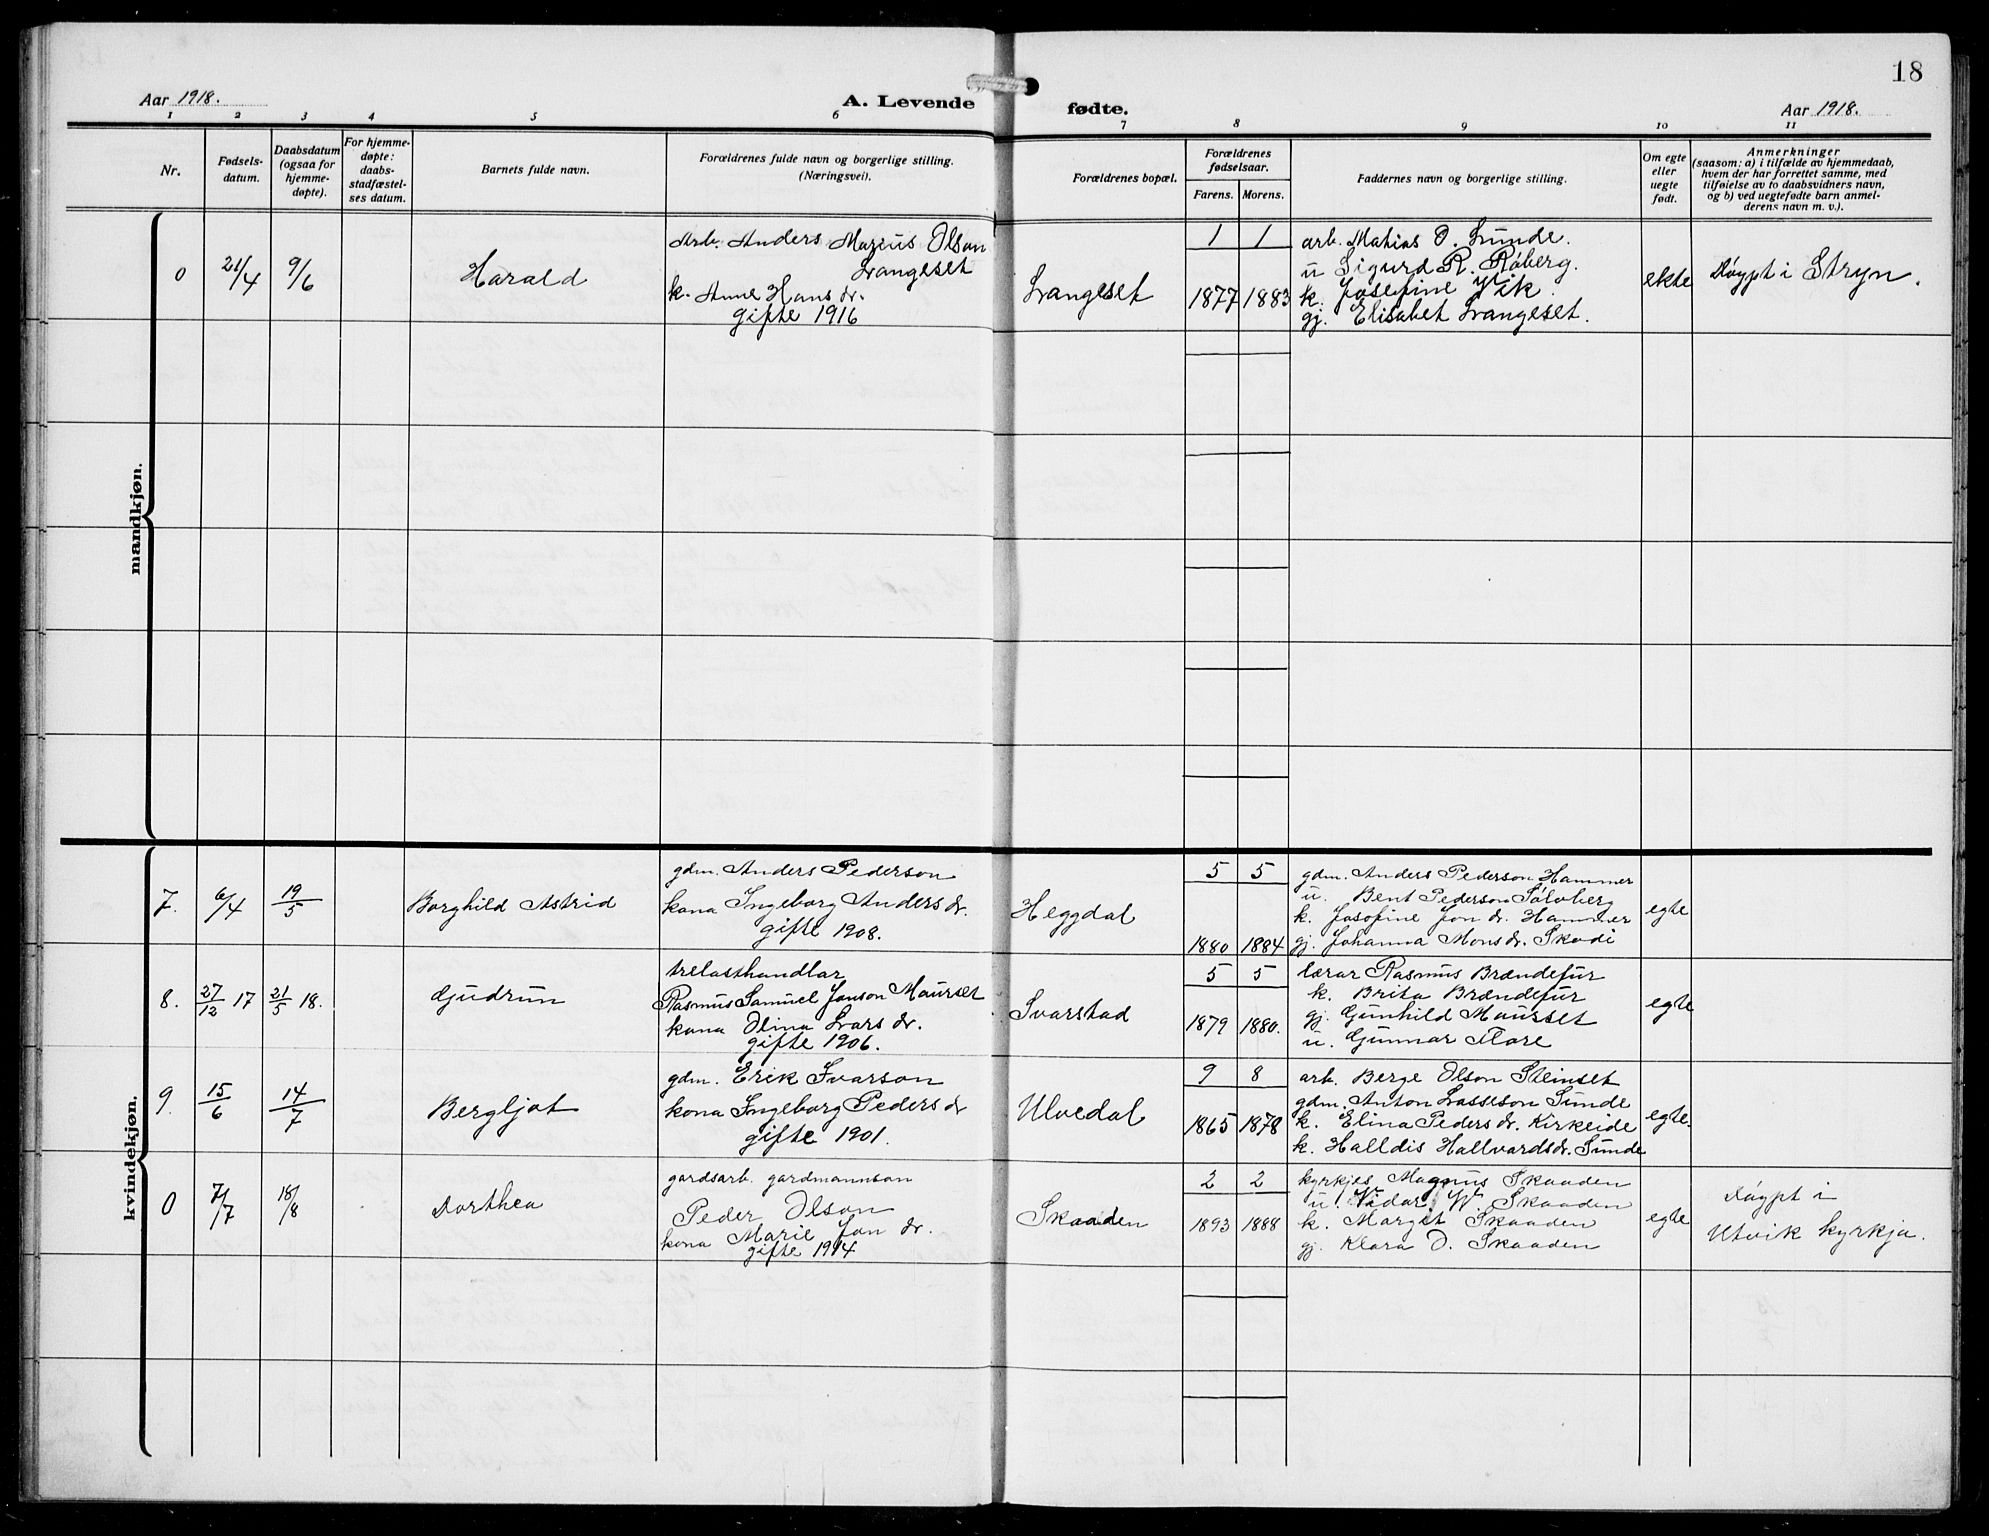 18
Aar 1918.
A. Levende
fødte.
Aar 1918.
1 2 3 4 5 6 7 8 9 10 11
Nr.
Fødsels-
datum.
Daabsdatum
(ogsaa for
hjemme-
døpte).
For hjemme-
døpte:
daabs-
stadfæstel-
ses datum.
Barnets fulde navn.
Forældrenes fulde navn og borgerlige stilling.
(Næringsvei).
Forældrenes bopæl.
Forældrenes
fødselsaar.
Farens. Morens.
Faddernes navn og borgerlige stilling.
Om egte
eller
uegte
født.
Anmerkninger
(saasom: a) i tilfælde av hjemmedaab,
hvem der har forrettet samme, med
tilføielse av to daabsvidners navn,
og b) ved uegtefødte barn anmel-
derens navn m. v.).
mandkjøn.
0
21/4
9/6
Harald
Arb. Anders Marius Olson
Langeset
k. Anne Hans dr.
gifte 1916
Langeset
1 1
1877 1883
arb. Matias O. Sunde.
u Sigurd R. Røberg.
k. Josefine Vik.
gj. Elisabet Langeset.
ekte
Døypt i Stryn.
kvindekjøn.
7.
6/4
19/5
Borghild Astrid
gdm. Anders Pederson
kona Ingeborg Anders dr.
gifte 1908.
Heggdal
5 5
1880 1884
gdm. Anders Pederson Hammer
u. Bent Pederson Sølvberg
k. Josefine Jon dr. Hammer
gj. Johanna Mons dr. Skadi
egte
8.
27/12 17
21/5 18.
Gjudrun
trelasthandlar
Rasmus Samuel Janson Maurset
kona Olina Lars dr.
gifte 1906.
Svarstad
5 5
1879 1880.
lærar Rasmus Brændefur
k. Brita Brændefur
gj. Gunhild Maurset
u. Gunnar Flore
egte
9.
15/6
14/7
Bergljot
gdm. Erik Ivarson
kona Ingeborg Peders dr
gifte 1901.
Ulvedal
9 8
1865 1878
arb. Berge Olson Steinset
gdm. Anton Lasseson Sunde
k. Elina Peders dr. Kirkeide
k. Halldis Hallvardsdr. Sunde
egte.
0
7/7
18/8
Dorthea
gardsarb. gardmannson
Peder Olson
kona Marie Jon dr.
gifte 1914
Skaaden
2 2
1893 1888
kyrkjes Magnus Skaaden
u. Vidar W. Skaaden
k. Marget Skaaden
gj. Klara O. Skaaden
egte
Døypt i
Utvik kyrkja.